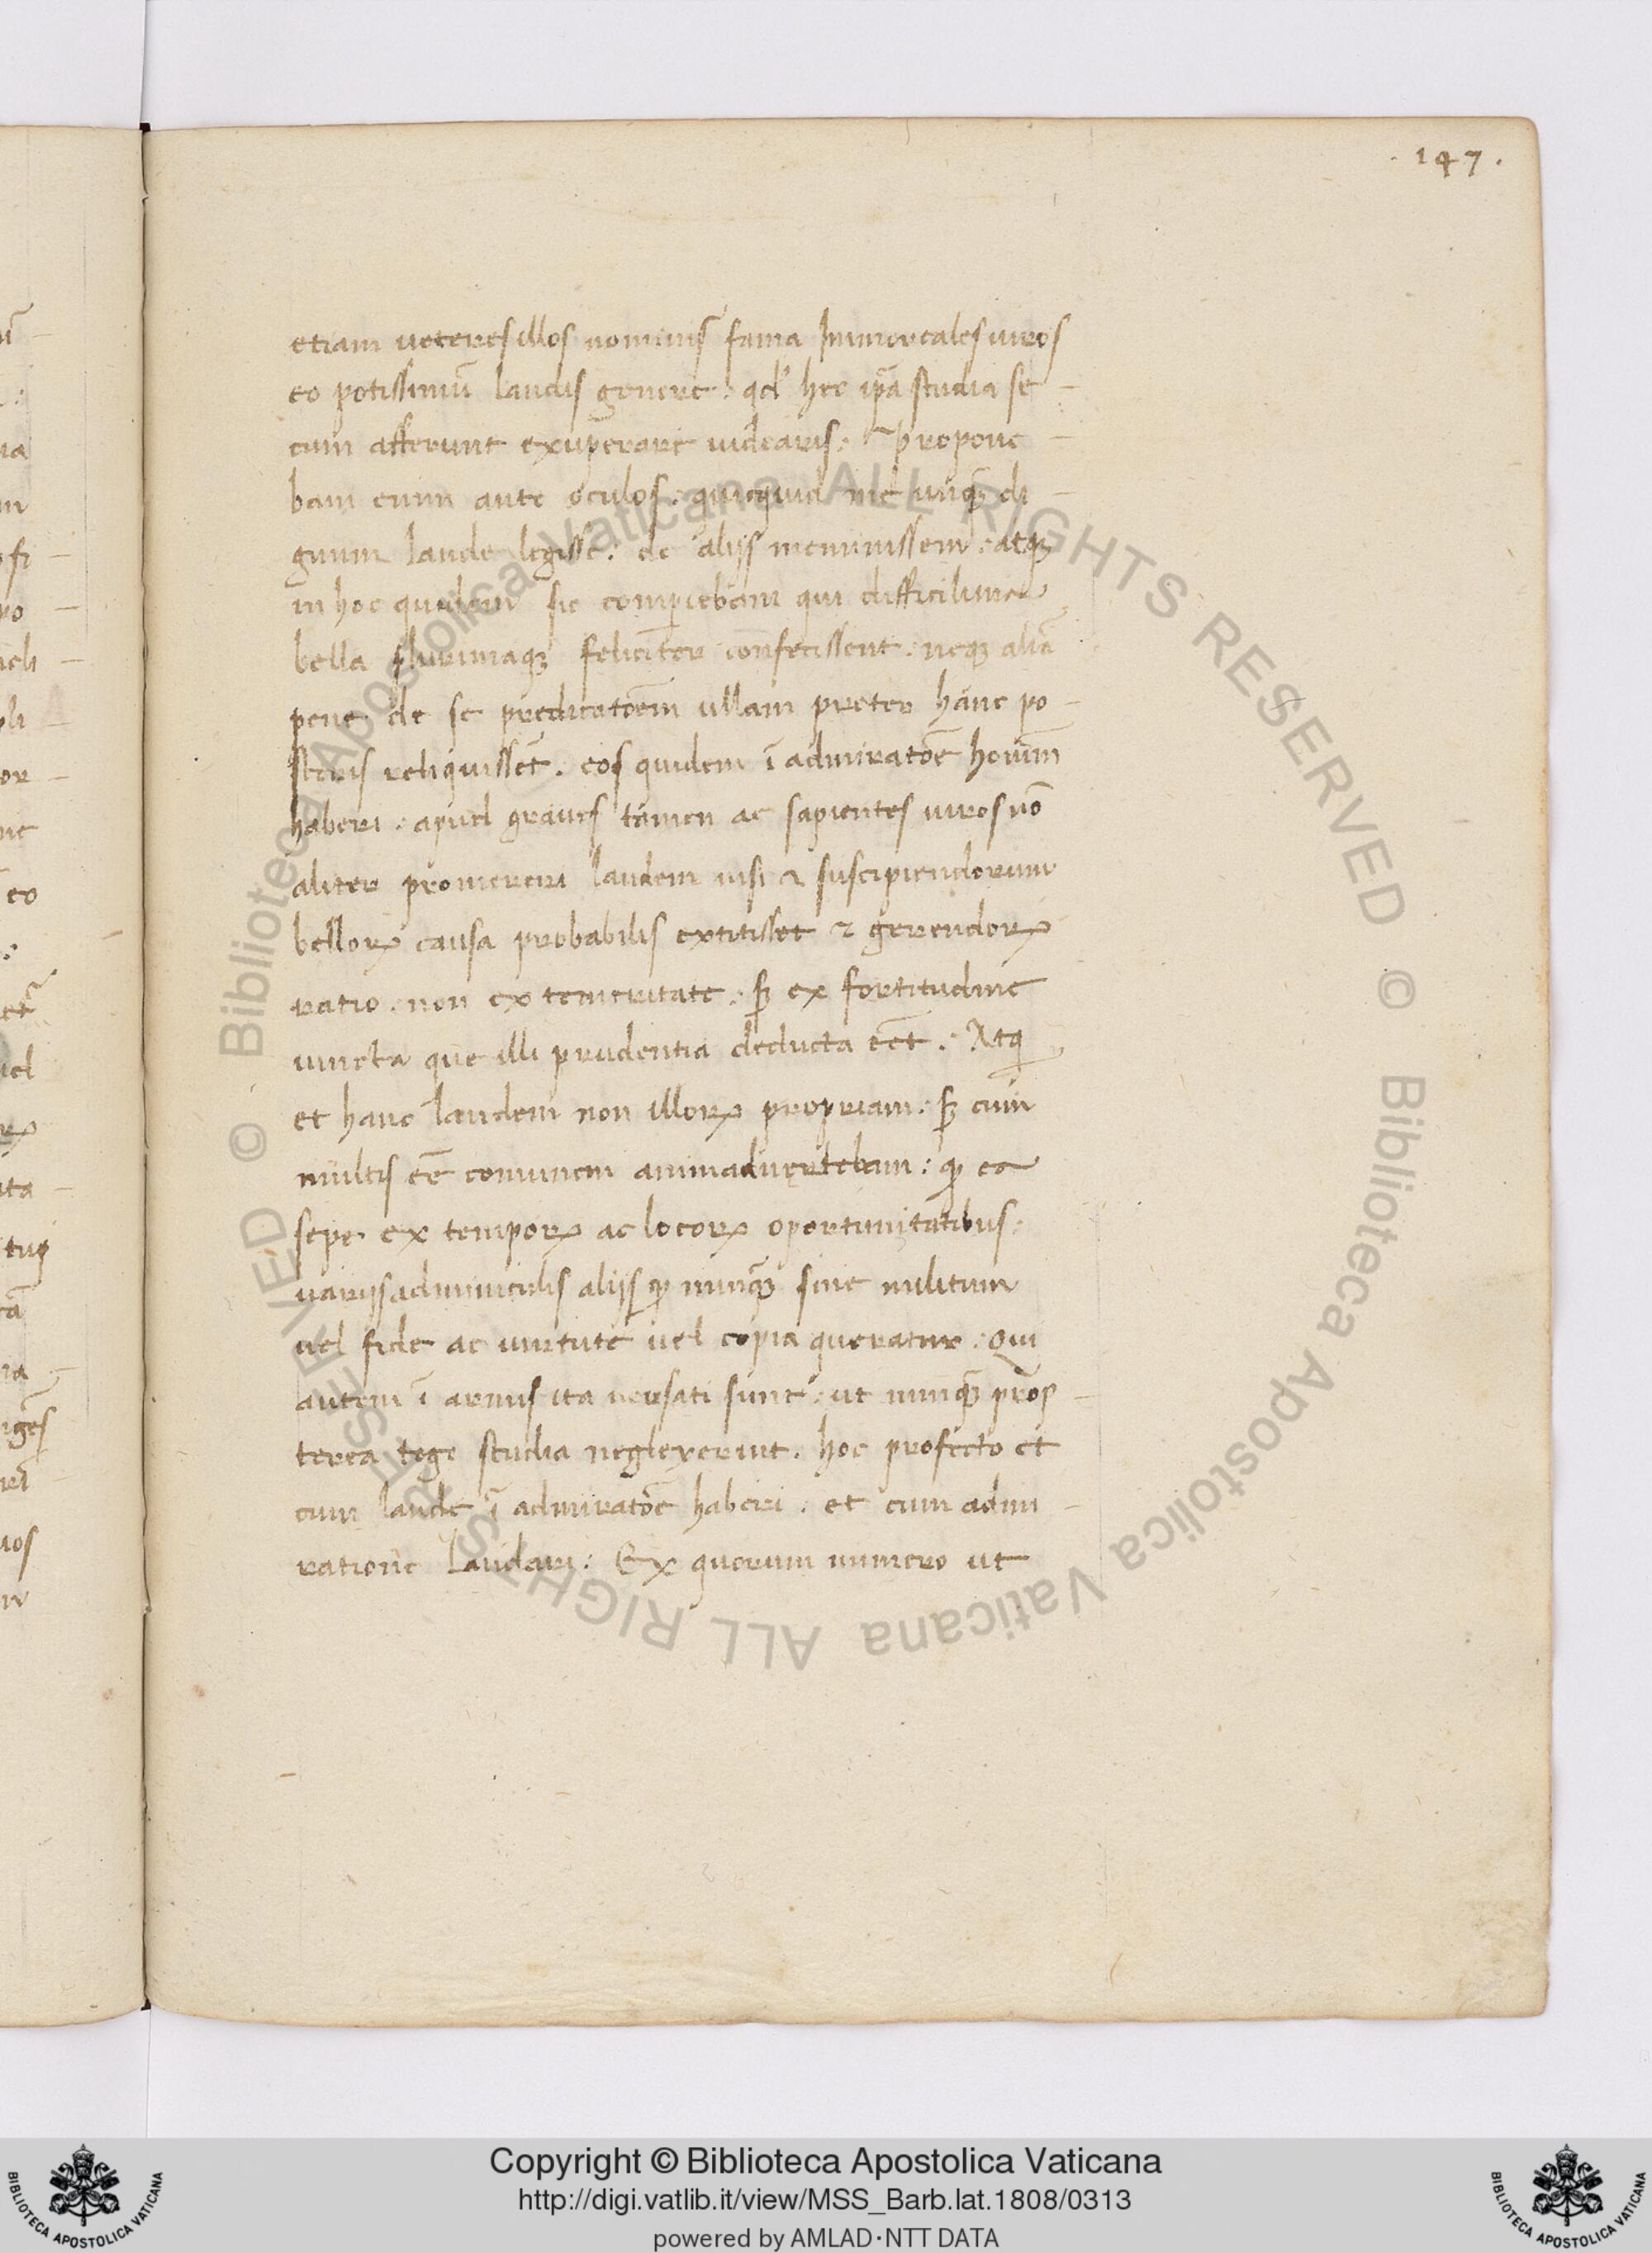 . 147 .
etiam ueteres illos nominis fama Immortales uiros
eo potissimũ laudis genere : qd' hec ip̃a studia se -
cum afferunt exup̱erare uidearis : Propone -
bam enim ante oculos : quicquid me unq̃ꝫ di -
gnum laude legisse : de alijs meminissem : atqꝫ
in hoc quidem sic comp̱iebam qui difficilima
bella plurimaqꝫ feliciter confecissent : neqꝫ aliã
pene de se predicatõem ullam preter hanc po -
steris reliquissẽt . eos quidem ĩ admiratõe hoĩum
haberi : apud graues tamen ac sapientes uiros nõ
aliter promereri laudem nisi ⁊ suscipiendorum
belloꝝ causa probabilis extitisset ⁊ gerendoꝝ
ratio . non ex temeritate : sꝫ ex fortitudine
iuncta que illi prudentia deducta eẽt . Atqꝫ
et hanc laudem non illoꝝ propriam : sꝫ cum
multis eẽ comunem animaduertebam : qꝫ ea
sepe ex tempoꝝ ac locoꝝ oportunitatibus :
uarijs adminiculis alijs qꝫ nunq̃ꝫ sine militum
uel fide ac uirtute uel copia queratur : Qui
autem ĩ armis ita uersati sunt : ut nunq̃ꝫ prop -
terea toge studia neglexerint . hos profecto et
cum laude ĩ admiratõe haberi . et cum admi -
ratione laudari : Ex quorum numero ut
© Biblioteca Apostolica Vaticana ALL RIGHTS RESERVED © Biblioteca Apostolica Vaticana ALL RIGHTS RESERVED
Copyright © Biblioteca Apostolica Vaticana
http://digi.vatlib.it/view/MSS_Barb.lat.1808/0313
powered by AMLAD·NTT DATA
BIBLIOTECA APOSTOLICA VATICANA
BIBLIOTECA APOSTOLICA VATICANA